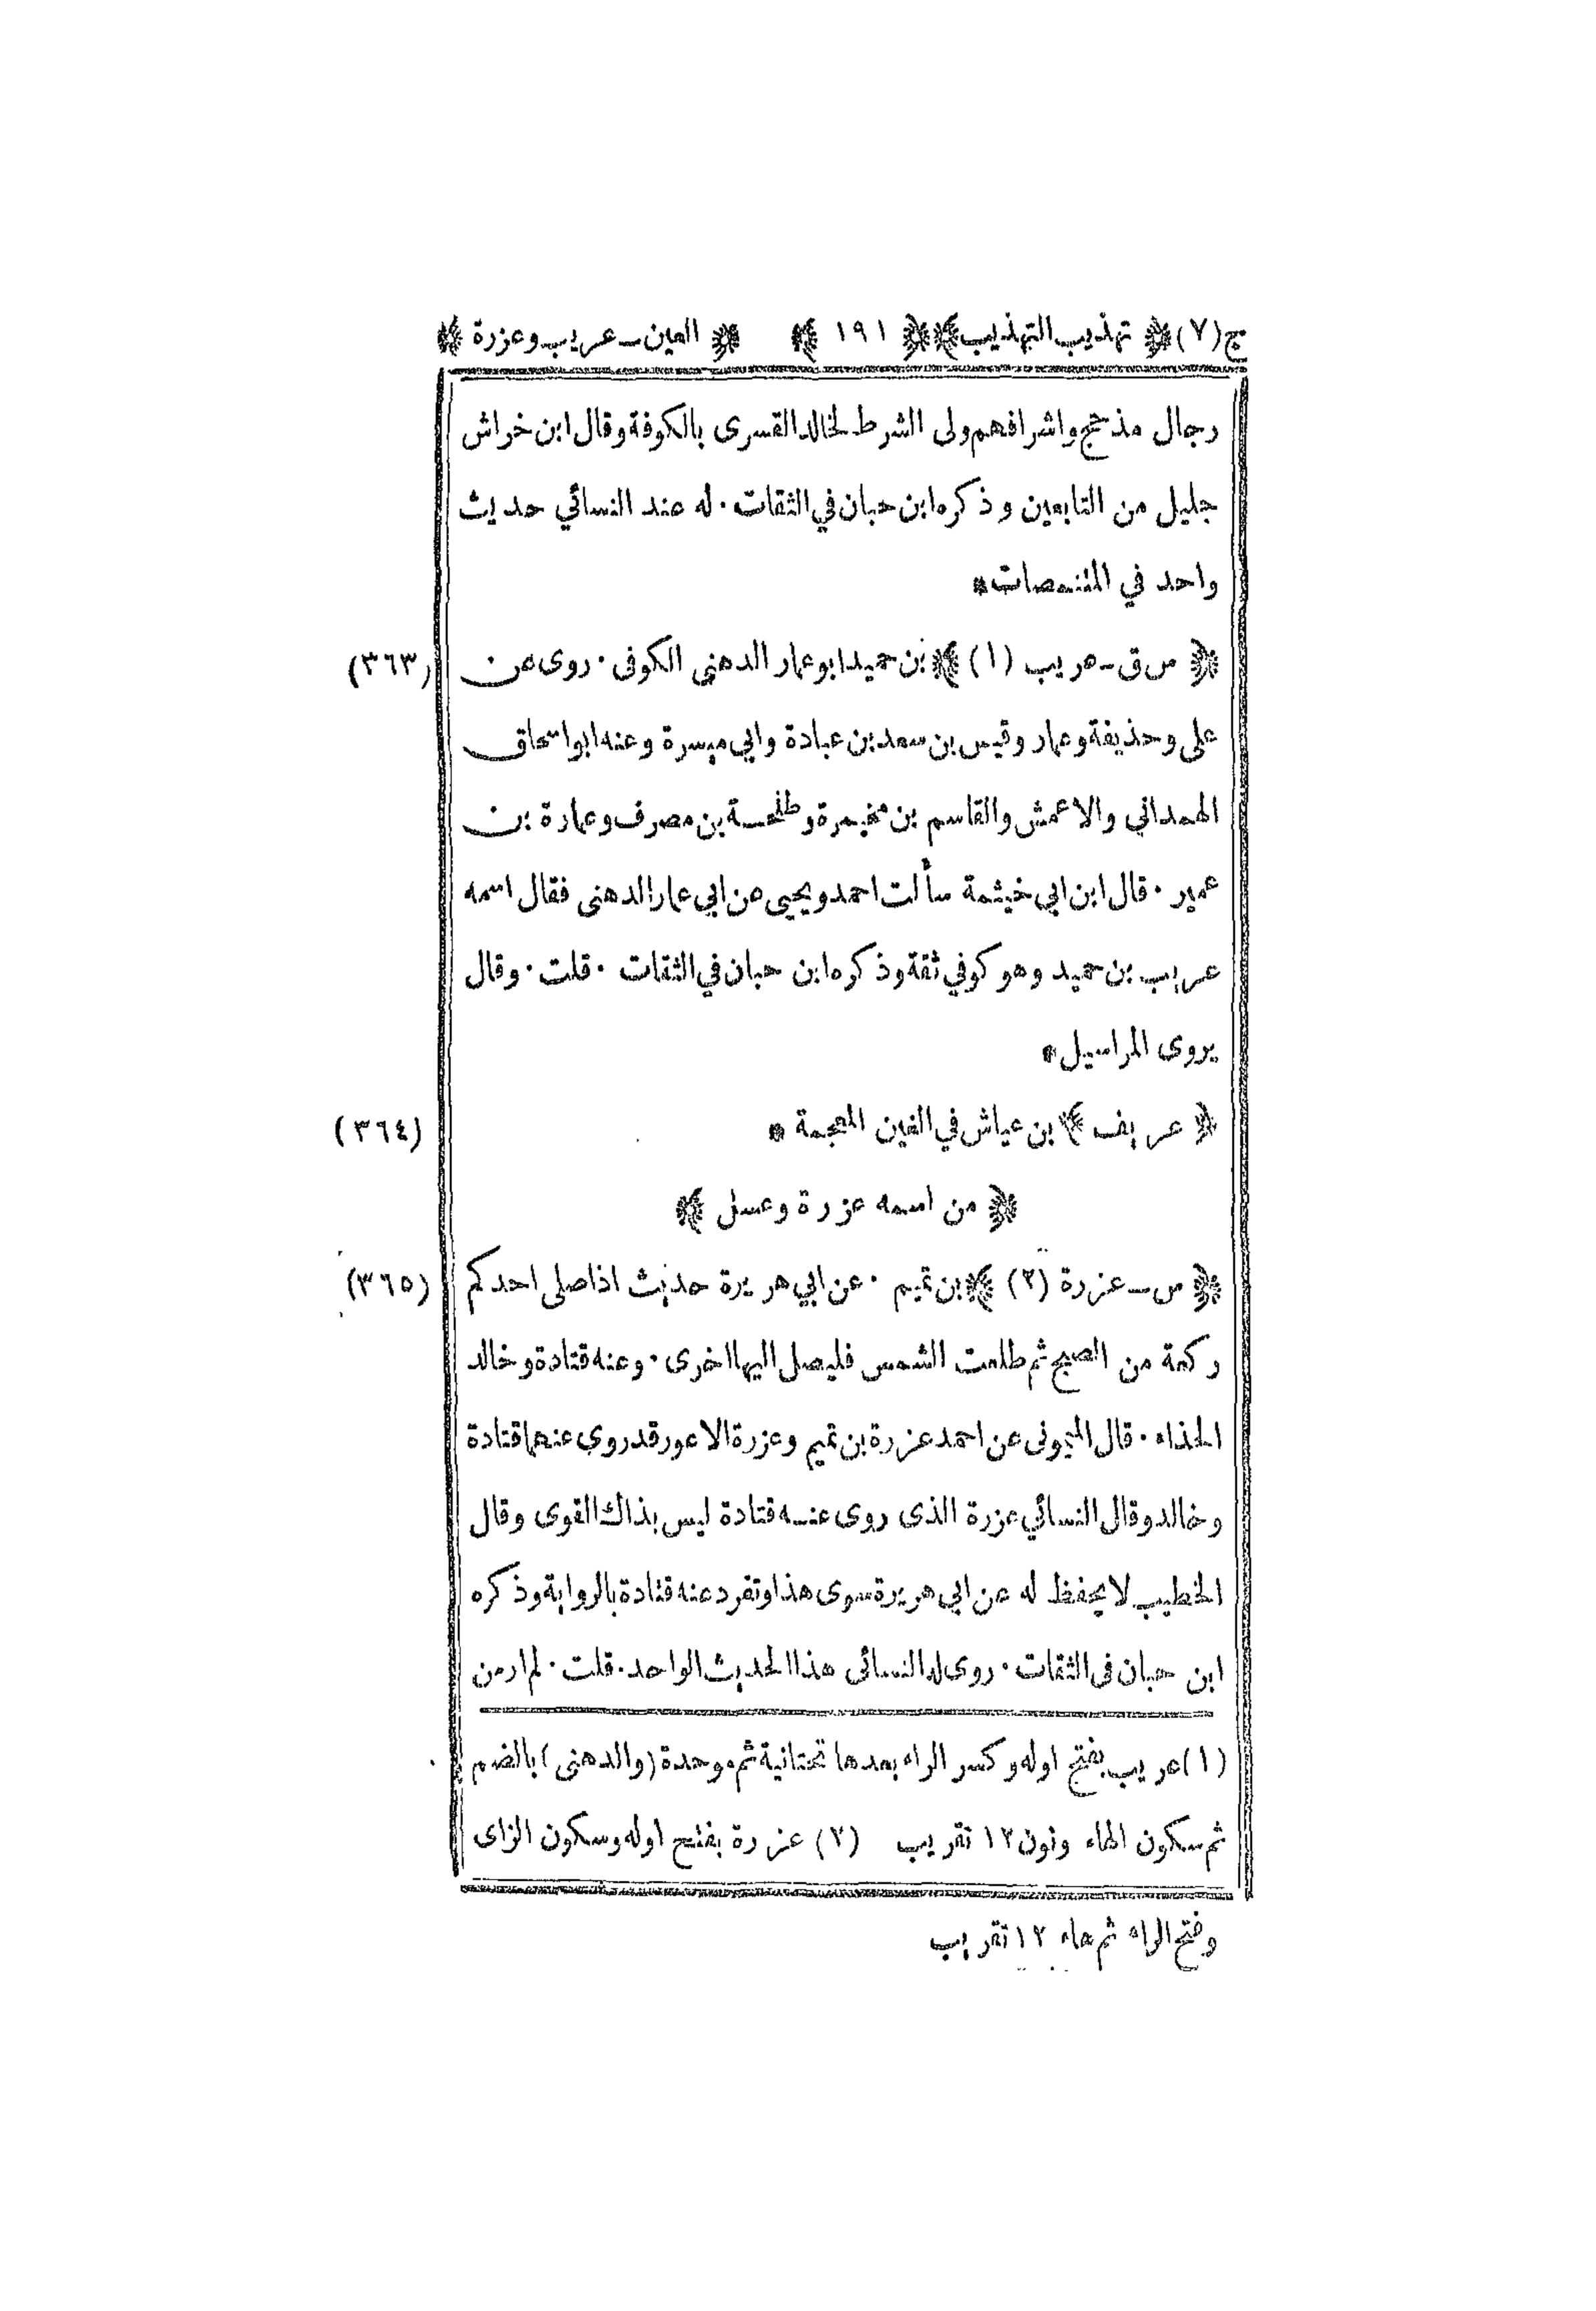 ج (٧) ﴿ تهذيب التهذيب ﴾ ﴿ ١٩١ ﴾ ﴿ العين ــ عريب وعزرة ﴾
رجال مذحج واشرافهم ولى الشرط لخالد القسرى بالكوفة وقال ابن خراش
جليل من التابعين وذكره ابن حبان في الثقات ٠ له عند النسائي حديث
واحد في المتنمصات *
﴿ س ق ــ عريب (١) ﴾ بن حميد ابو عمار الدهني الكوفى ٠ روى عن (٣٦٣)
على وحذيفة وعمار وقيس بن سعد بن عبادة وابي ميسرة وعنه ابو اسحاق
الهمداني والاعمش والقاسم بن مخيمرة وطلحة بن مصرف وعمارة بن
عمير ٠ قال ابن ابي خيثمة سألت احمد ويحيى عن ابي عمار الدهنى فقال اسمه
عريب بن حميد وهو كوفي ثقة وذكره ابن حبان في الثقات ٠ قلت ٠ وقال
يروى المراسيل *
﴿ عريف ﴾ بن عياش في الغين المعجمة * (٣٦٤)
﴿ من اسمه عزرة وعسل ﴾
﴿ س ــ عزرة (٢) ﴾ بن تميم ٠ عن ابي هريرة حديث اذا صلى احدكم (٣٦٥)
ركعة من الصبح ثم طلعت الشمس فليصل اليها اخرى ٠ وعنه قتادة وخالد
الحذاء ٠ قال الميمونى عن احمد عزرة بن تميم وعزرة الاعور قد روى عنهما قتادة
وخالد وقال النسائي عزرة الذى روى عنه قتادة ليس بذاك القوى وقال
الخطيب لا يحفظ له عن ابي هريرة سوى هذا وتفرد عنه قتادة بالرواية وذكره
ابن حبان فى الثقات ٠ روى له النسائى هذا الحديث الواحد ٠ قلت ٠ لم ار من
(١) عريب بفتح اوله وكسر الراء بعدها تحتانية ثم موحدة (والدهنى) بالضم
ثم سكون الهاء ونون ١٢ تقريب (٢) عزرة بفتح اوله وسكون الزاى
وفتح الراء ثم هاء ١٢ تقريب